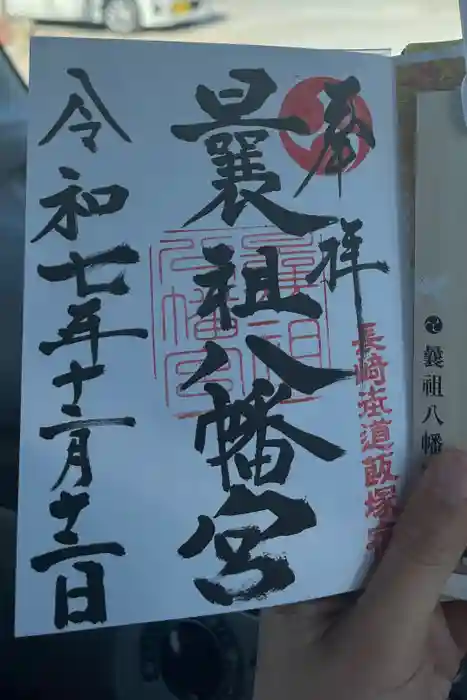 曩祖八幡
奉拝
長崎街道飯塚
曩祖八幡宮
曩祖
八幡宮
令和七年十二月十二日